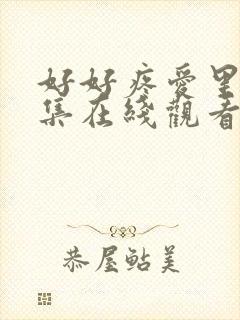 好好疼愛里
集在綫觀看
恭屋鮎美